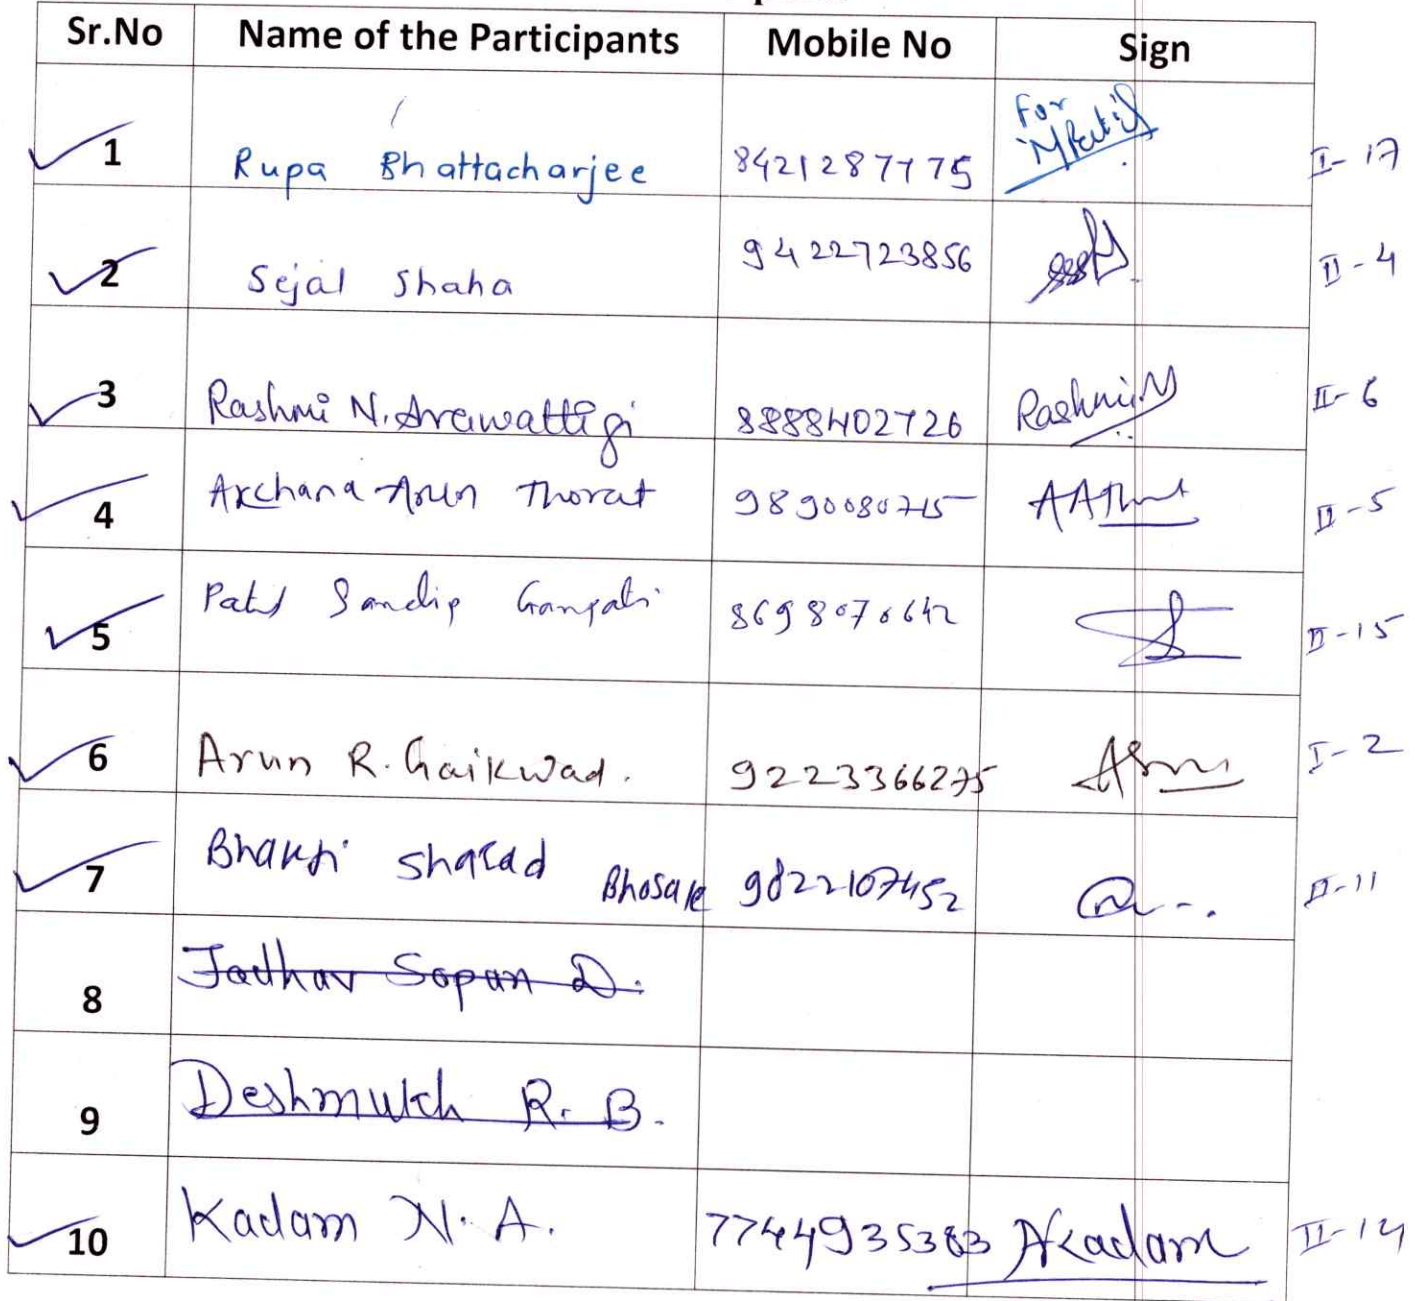 Sr.No Name of the Participants Mobile No Sign
1 Rupa Bhattacharjee 8421287775 For MPatil I-17
2 Sejal Shaha 9422723856 II-4
3 Rashmi N. Arawattigi 8888402726 Rashmi.N II-6
4 Archana Arun Thorat 9890080715 AAThorat II-5
5 Patil Sandip Ganpati 8698070642 II-15
6 Arun R. Gaikwad. 9223366275 II-2
7 Bhakti Sharad Bhosale 9822107452 II-11
8 Jadhav Sopan D.
9 Deshmukh R. B.
10 Kadam N. A. 7744935383 NKadam II-14